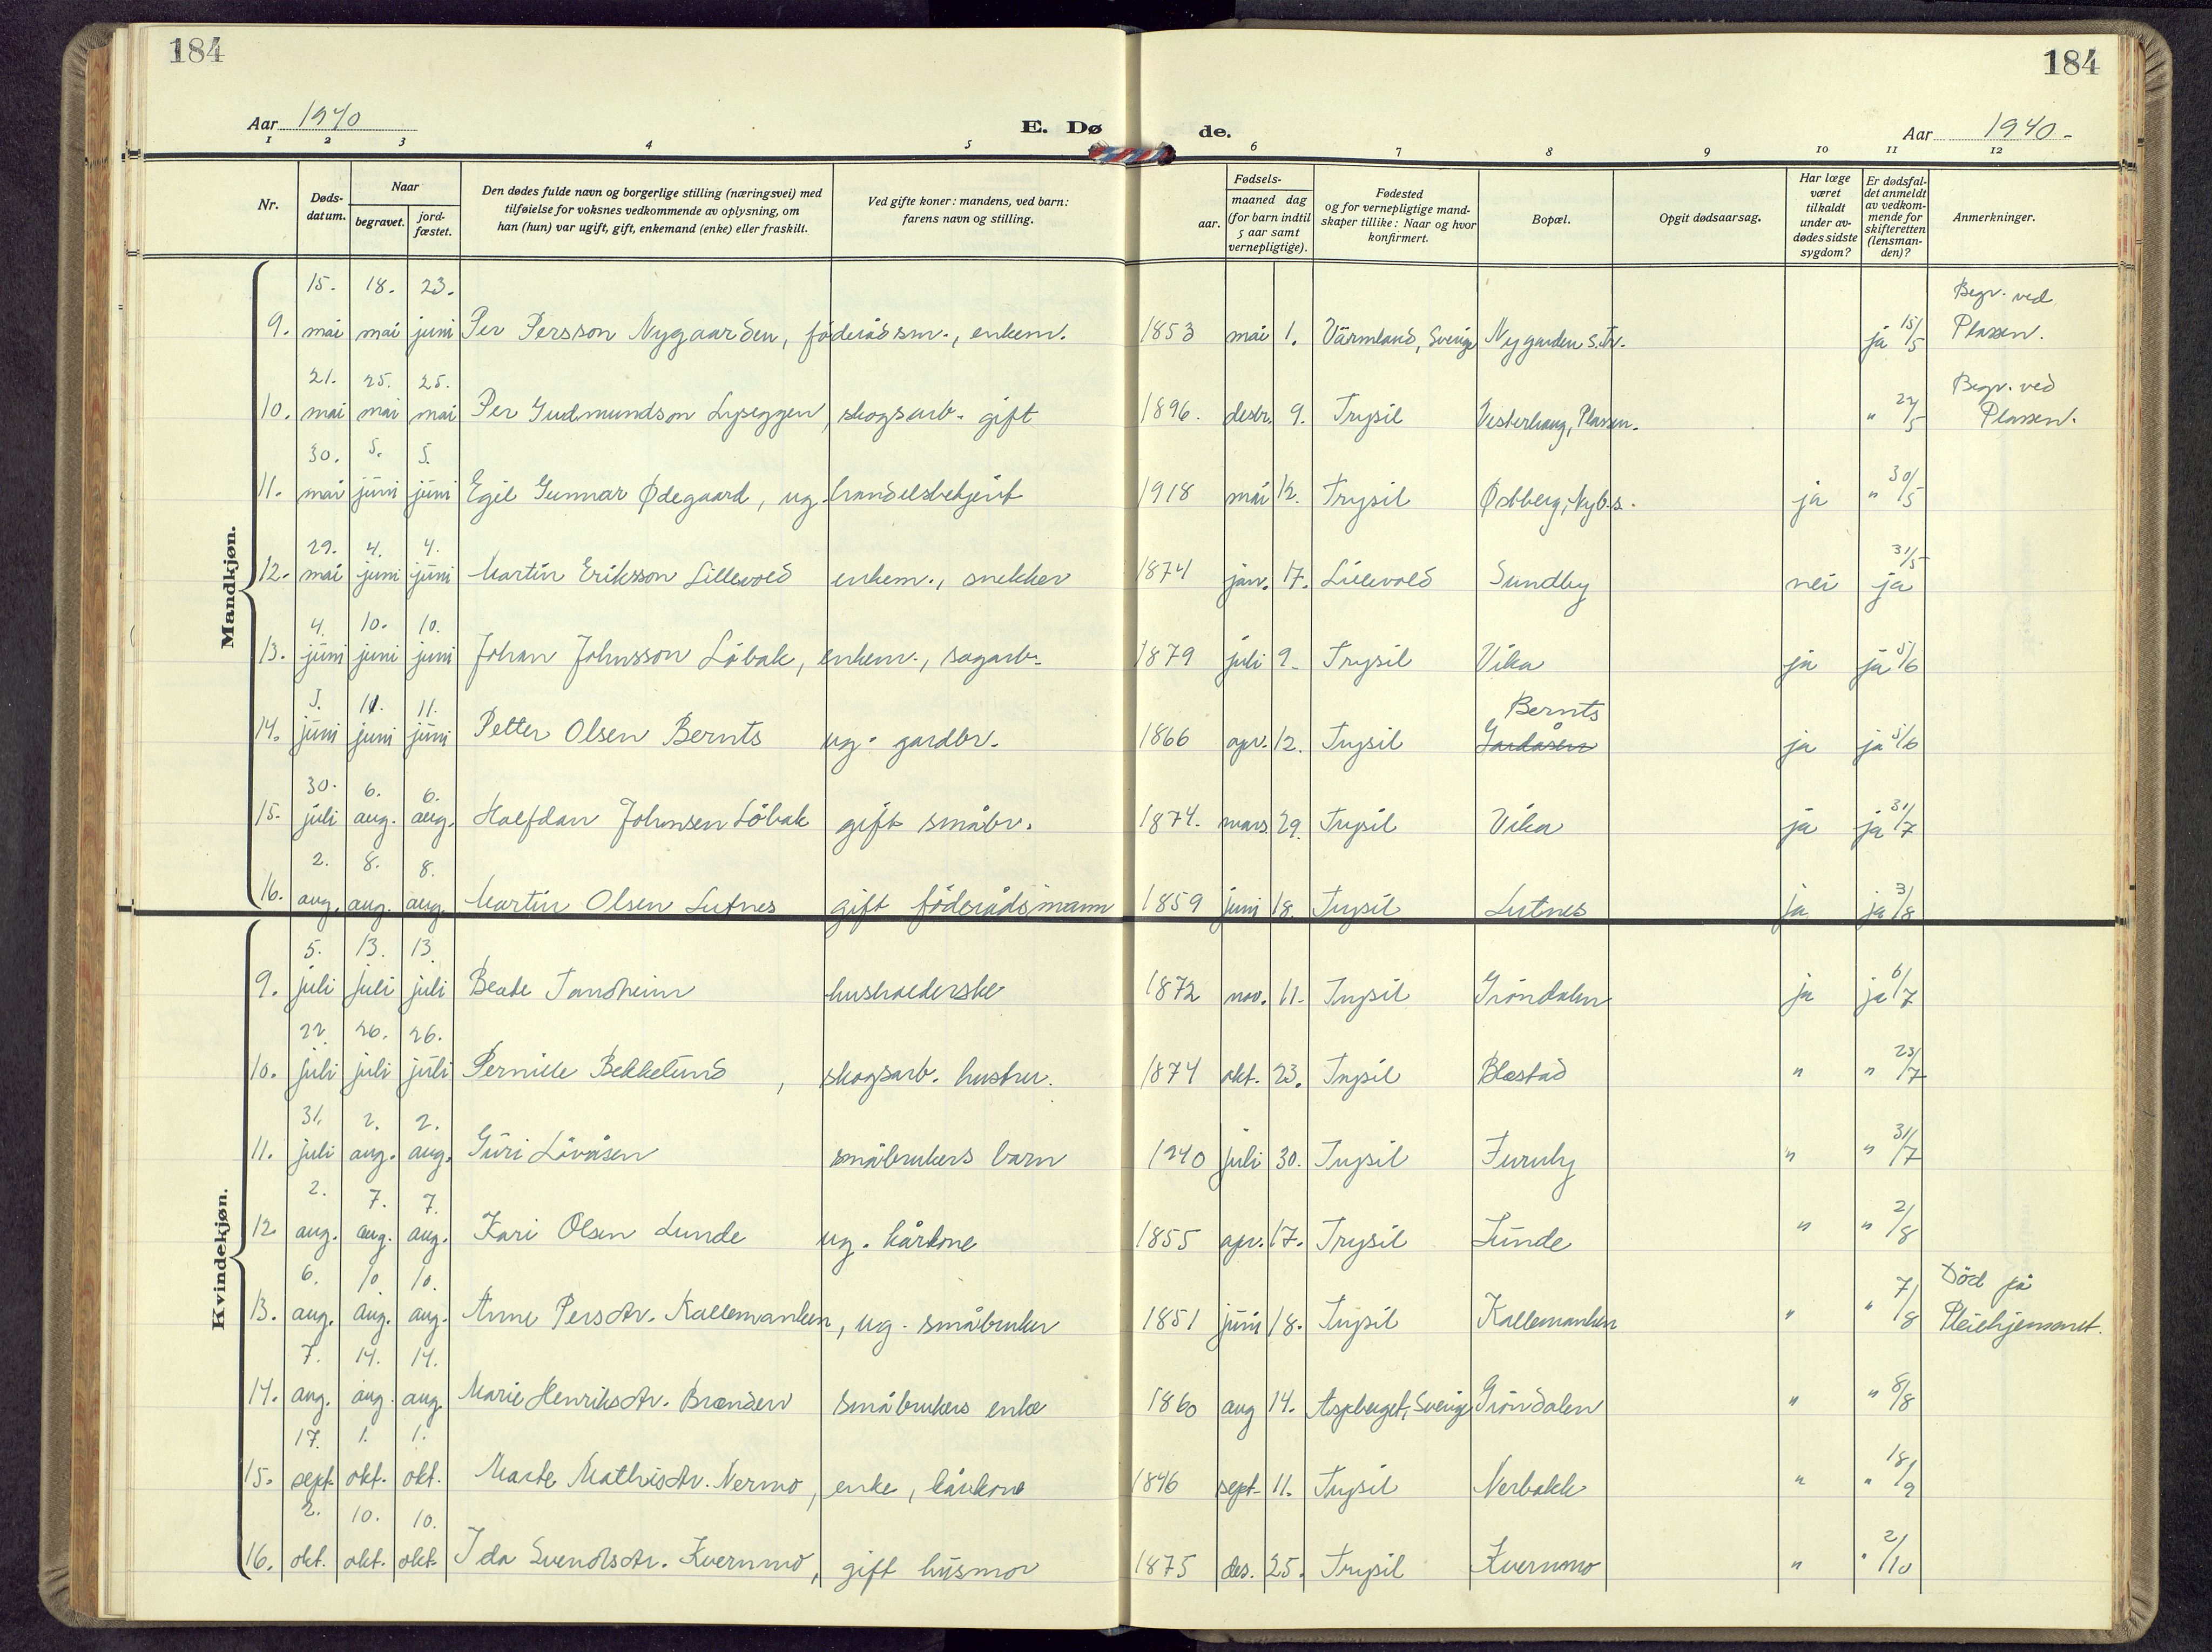 184
184
Aar 1940
E. Dø
de.
Aar 1940.-
1 2 3 4 5 6 7 8 9 10 11 12
Nr.
Døds-
datum.
Naar
begravet.
jord-
fæstet.
Den dødes fulde navn og borgerlige stilling (næringsvei) med
tilføielse for voksnes vedkommende av oplysning, om
han (hun) var ugift, gift, enkemand (enke) eller fraskilt.
Ved gifte koner: mandens, ved barn:
farens navn og stilling.
Fødsels-
aar.
maaned dag
(for barn indtil
5 aar samt
vernepligtige).
Fødested
og for vernepligtige mand-
skaper tillike: Naar og hvor
konfirmert.
Bopæl.
Opgit dødsaarsag.
Har læge
været
tilkaldt
under av-
dødes sidste
sygdom?
Er dødsfal-
det anmeldt
av vedkom-
mende for
skifteretten
(lensman-
den)?
Anmerkninger.
Mandkjøn.
15. 18. 23. Begr. ved
9. mai mai juni Per Persson Nygaarden, föderådsm., enkem. 1853 mai 1. Värmland, Sverige Nygarden S.Tr. ja 15/5 Plassen.
21. 25. 25. Begr. ved
10. mai mai mai Per Gudmundson Lyseggen, skogsarb. gift 1896. desbr. 9. Trysil Vesterhaug, Plassen. " 22/5 Plassen.
30. 5. 5.
11. mai juni juni Egil Gunnar Ødegaard, ug. handelsbetjent 1918 mai 12. Trysil Østberg, Nyb.s. ja " 30/5
29. 4. 4. 31/5
12. mai juni juni Martin Eriksson Lillevold enkem., snekker 1874 jan. 17. Lillevold Sundby nei ja
4. 10. 10.
13. juni juni juni Johan Johnsson Löbak, enkem., sagarb. 1879 juli 9. Trysil Vika ja ja 5/6
5. 11. 11. Bernts
14. juni juni juni Petter Olsen Bernts ug. gardbr. 1866 apr. 12. Trysil Gardåsen ja ja 5/6
30. 6. 6.
15. juli aug. aug. Halfdan Johnsen Löbak gift småbr. 1874. mars 29. Trysil Vika ja ja 31/7
2. 8. 8.
16. aug. aug. aug. Martin Olsen Lutnes gift föderådsmann 1859 juni 18. Trysil Lutnes ja ja 3/8
Kvindekjøn.
5. 13. 13.
9. juli juli juli Beate Tandheim husholderske 1872 nov. 11. Trysil Gröndalen ja ja 6/7
22. 26. 26.
10. juli juli juli Pernille Bekkelund, skogsarb. hustru. 1874 okt. 23. Trysil Blostad " " 23/7
31. 2. 2.
11. juli aug. aug. Guri Lövåsen småbrukers barn 1940 juli 30. Trysil Furuly " " 31/7
2. 7. 7.
12. aug. aug. aug. Kari Olsen Lunde ug. kårkone 1855 apr. 17. Trysil Lunde " " 2/8
6. 10. 10. Död på
13. aug. aug. aug. Anne Persdtr. Kallemanken, ug. småbruker 1851 juni 18. Trysil Kallemanken " " 7/8 Pleiehjemmet.
7. 14. 14.
14. aug. aug. aug. Marie Henriksdtr. Brænden småbrukers enke 1860 aug 14. Aspberget, Sverige Gröndalen " " 8/8
17. 1. 1.
15. sept. okt. okt. Marte Mathisdtr. Nermo, enke, kårkone 1846 sept. 11. Trysil Nerbakk " " 18/9
2. 10. 10.
16. okt. okt. okt. Ida Svendsdtr. Kvernmo, gift husmor 1875 des. 25. Trysil Kvernmo " " 2/10